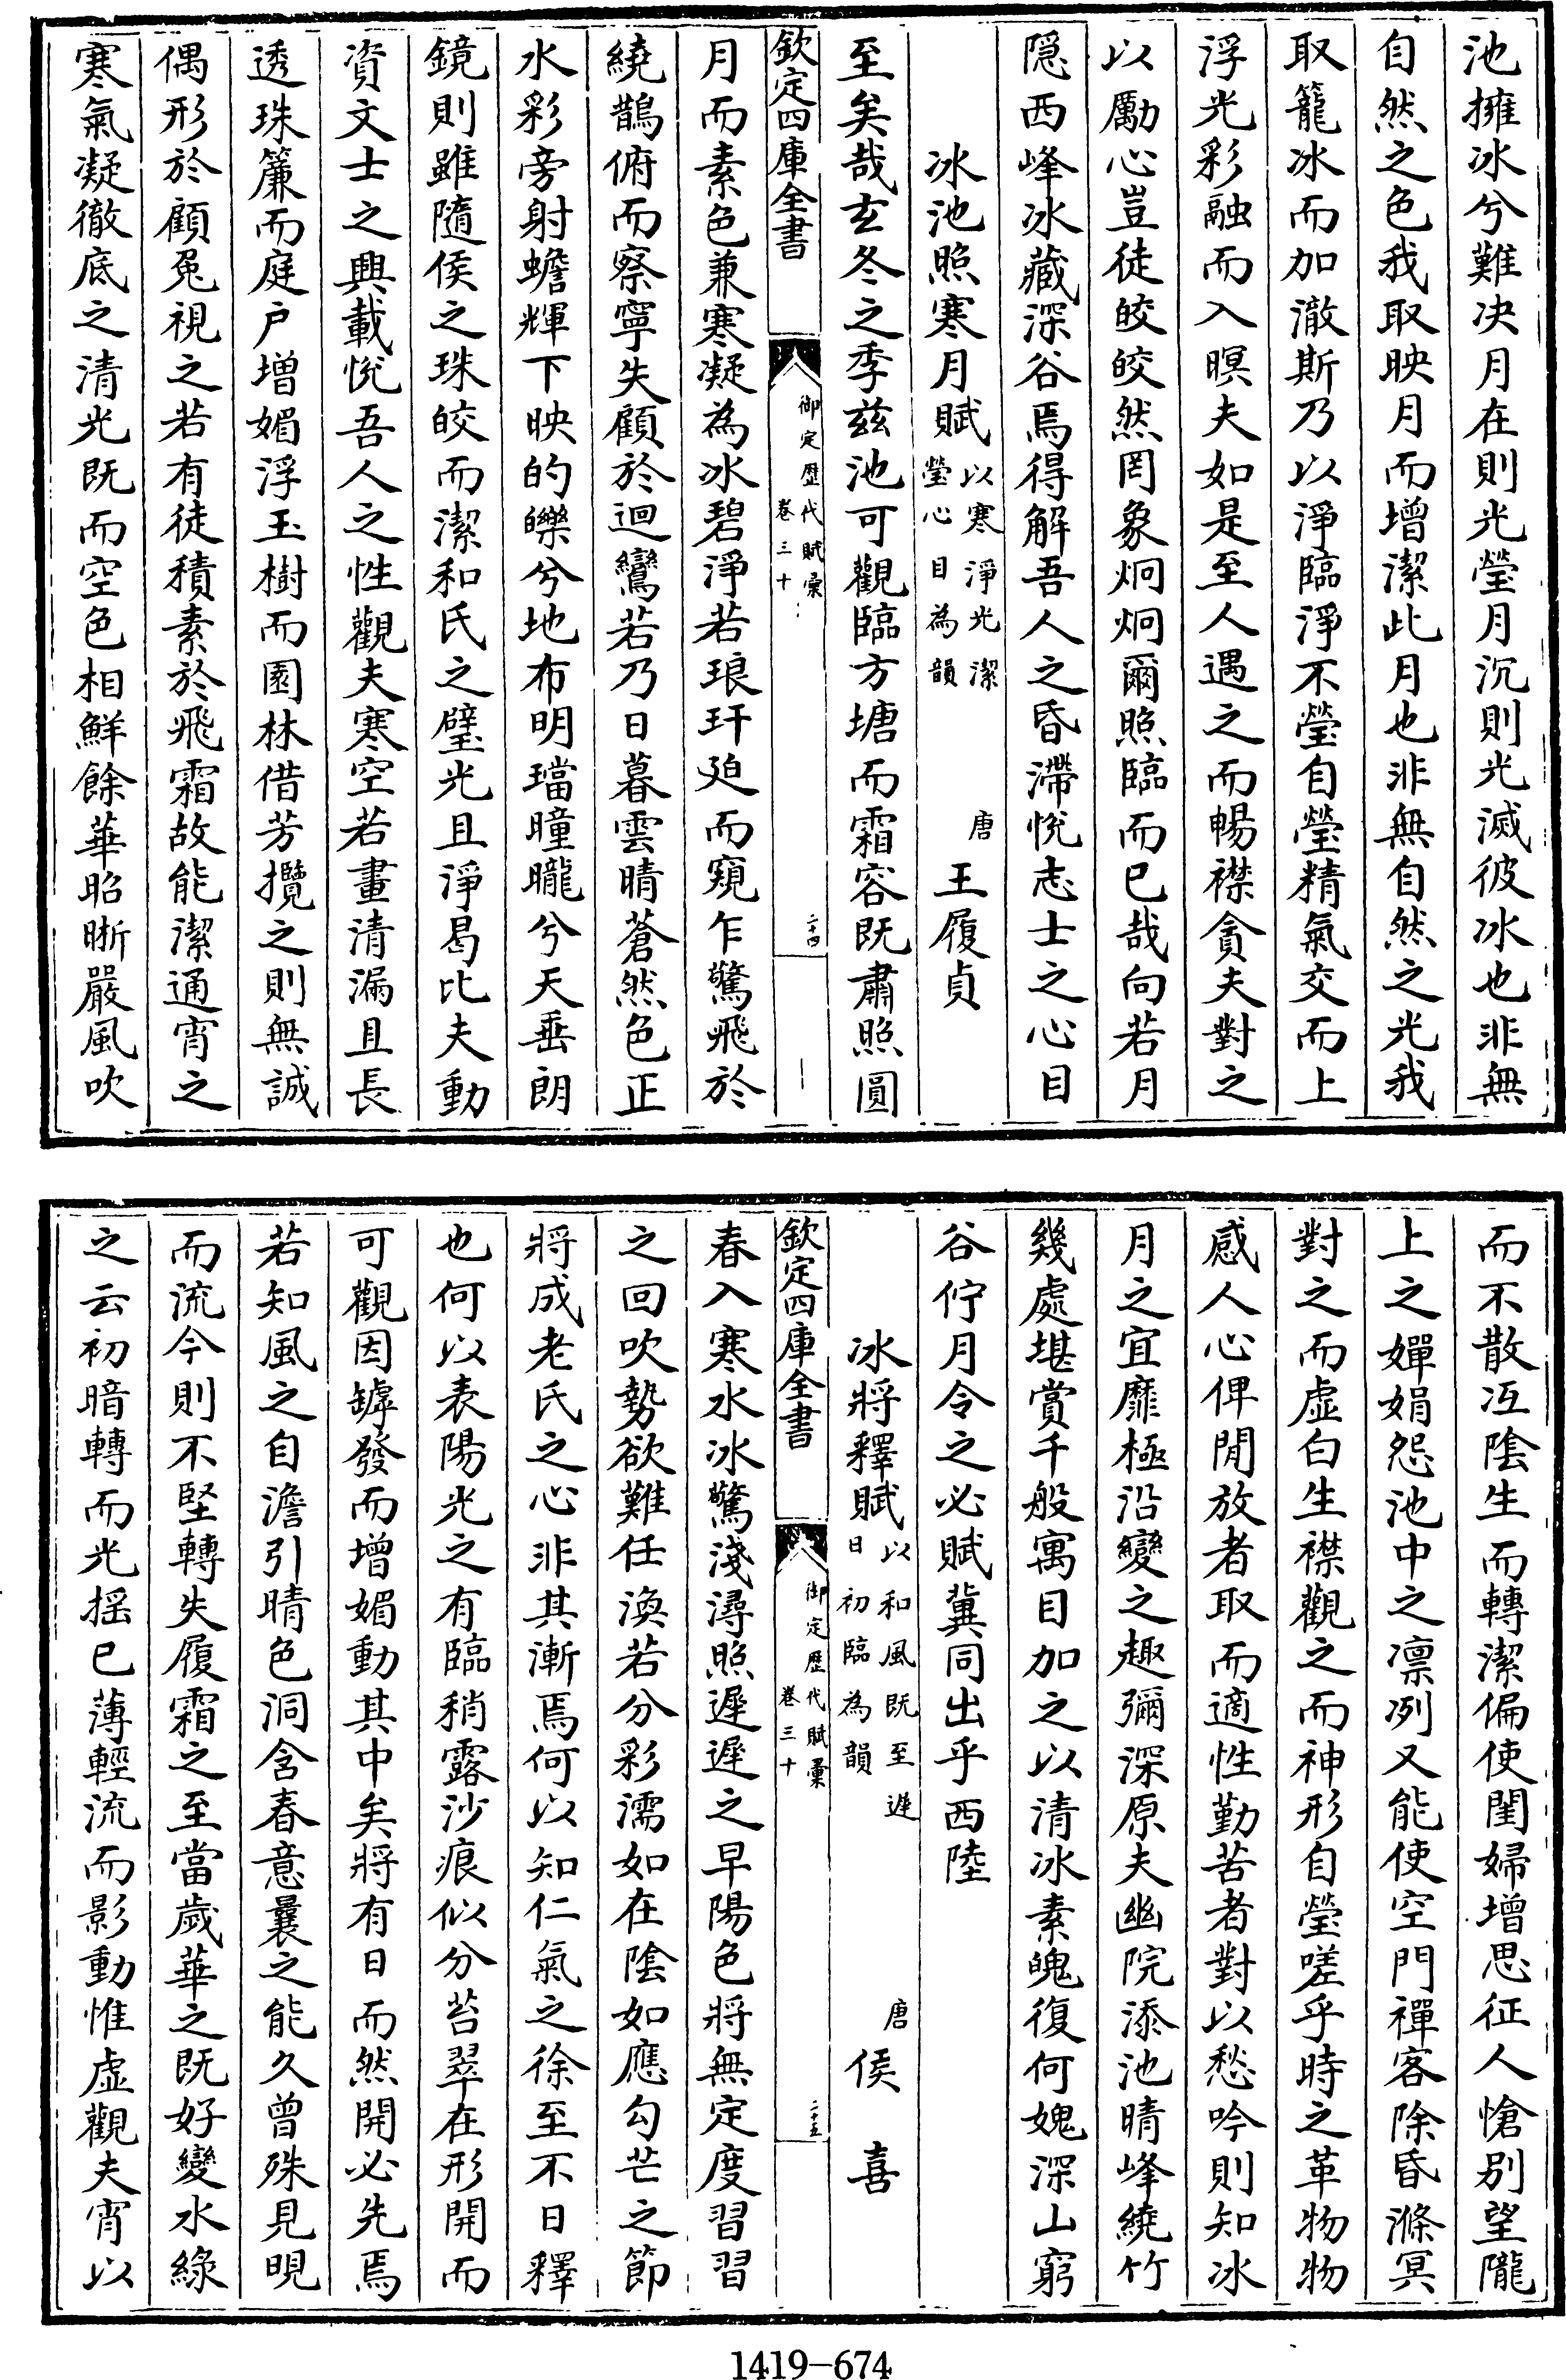 池擁冰兮難决月在則光瑩月沉則光滅彼冰也非無
自然之色我取映月而增潔此月也非無自然之光我
取籠冰而加澈斯乃以淨臨淨不瑩自瑩精氣交而上
浮光彩融而入暝夫如是至人遇之而暢襟貪夫對之
以勵心豈徒皎皎然罔象炯炯爾照臨而已哉向若月
隠西峰冰藏深谷焉得解吾人之昏滯悅志士之心目
冰池照寒月賦以寒淨光潔瑩心目為韻 唐 王履貞
至矣哉玄冬之季兹池可觀臨方塘而霜容既肅照圓
欽定四庫全書 御定歴代賦彙 卷三十 二十四
月而素色兼寒凝為冰碧淨若琅玕廹而窺乍驚飛於
繞鵲俯而察寧失顧於迴鸞若乃日暮雲晴蒼然色正
水彩旁射蟾輝下映的皪兮地布明璫曈曨兮天垂朗
鏡則雖隨侯之珠皎而潔和氏之璧光且淨曷比夫動
資文士之興載悅吾人之性觀夫寒空若晝清漏且長
透珠簾而庭户增媚浮玉樹而園林借芳攬之則無誠
偶形於顧兔視之若有徒積素於飛霜故能潔通宵之
寒氣凝徹底之清光既而空色相鮮餘華昭晣嚴風吹
而不散冱陰生而轉潔偏使閨婦增思征人愴别望隴
上之嬋娟怨池中之凛冽又能使空門禪客除昏滌冥
對之而虚白生襟觀之而神形自瑩嗟乎時之革物物
感人心俾閒放者取而適性勤苦者對以愁吟則知冰
月之宜靡極沿變之趣彌深原夫幽院添池晴峰繞竹
幾處堪賞千般寓目加之以清冰素魄復何媿深山窮
谷佇月令之必賦冀同出乎西陸
冰將釋賦以和風既至遲日初臨為韻 唐 侯喜
欽定四庫全書 御定歴代賦彙 卷三十 二十五
春入寒水冰驚淺潯照遲遲之早陽色將無定度習習
之回吹勢欲難任渙若分彩濡如在陰如應勾芒之節
將成老氏之心非其漸焉何以知仁氣之徐至不日釋
也何以表陽光之有臨稍露沙痕似分苔翠在形開而
可觀因罅發而增媚動其中矣將有日而然開必先焉
若知風之自澹引晴色洞含春意曩之能久曾殊見晛
而流今則不堅轉失履霜之至當歲華之既好變水綠
之云初暗轉而光揺已薄輕流而影動惟虚觀夫宵以
1419-674